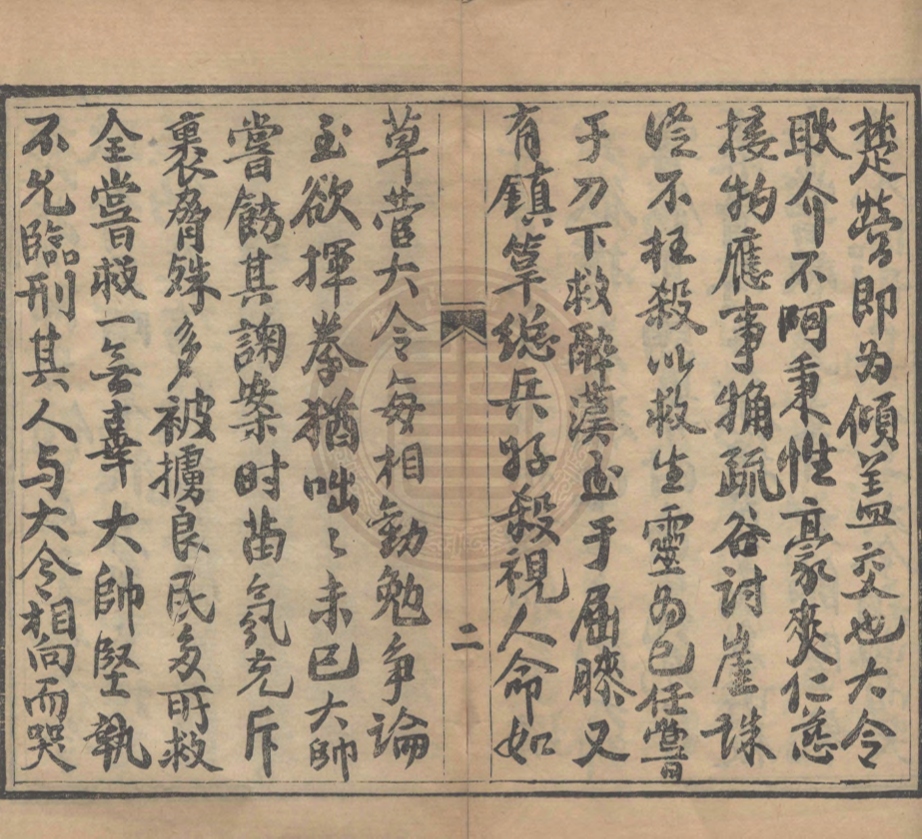 楚營即为傾盖交也大令
耿介不阿秉性豪爽仁慈
接物應事疏谷討崖誅
從不枉殺以救生靈为己任嘗
于刀下救醉漢至于屈膝又
有鎮筸總兵好殺視人命如
二
草菅大令每相勸勉争論
至欲揮拳猶咄〻未已大帥
嘗飭其諊案时苗氛充斥
裹脅殊多被擄良民多所救
全嘗救一无辜大帥堅執
不允臨刑其人与大令相向而哭